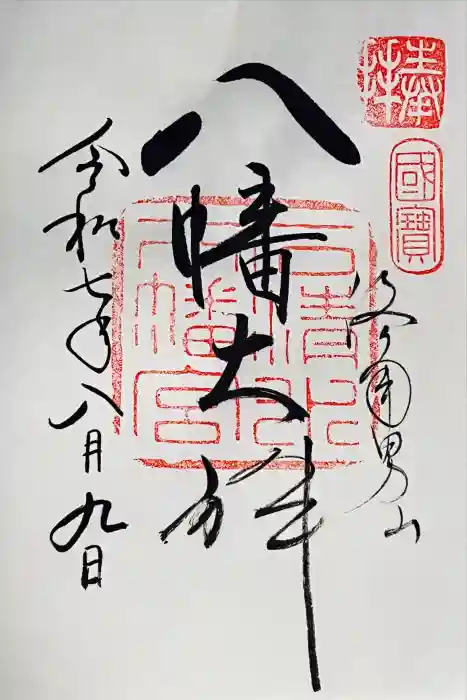 奉拜
國寶
洛南男山
八幡大神
石清水
八幡宮
令和七年八月九日